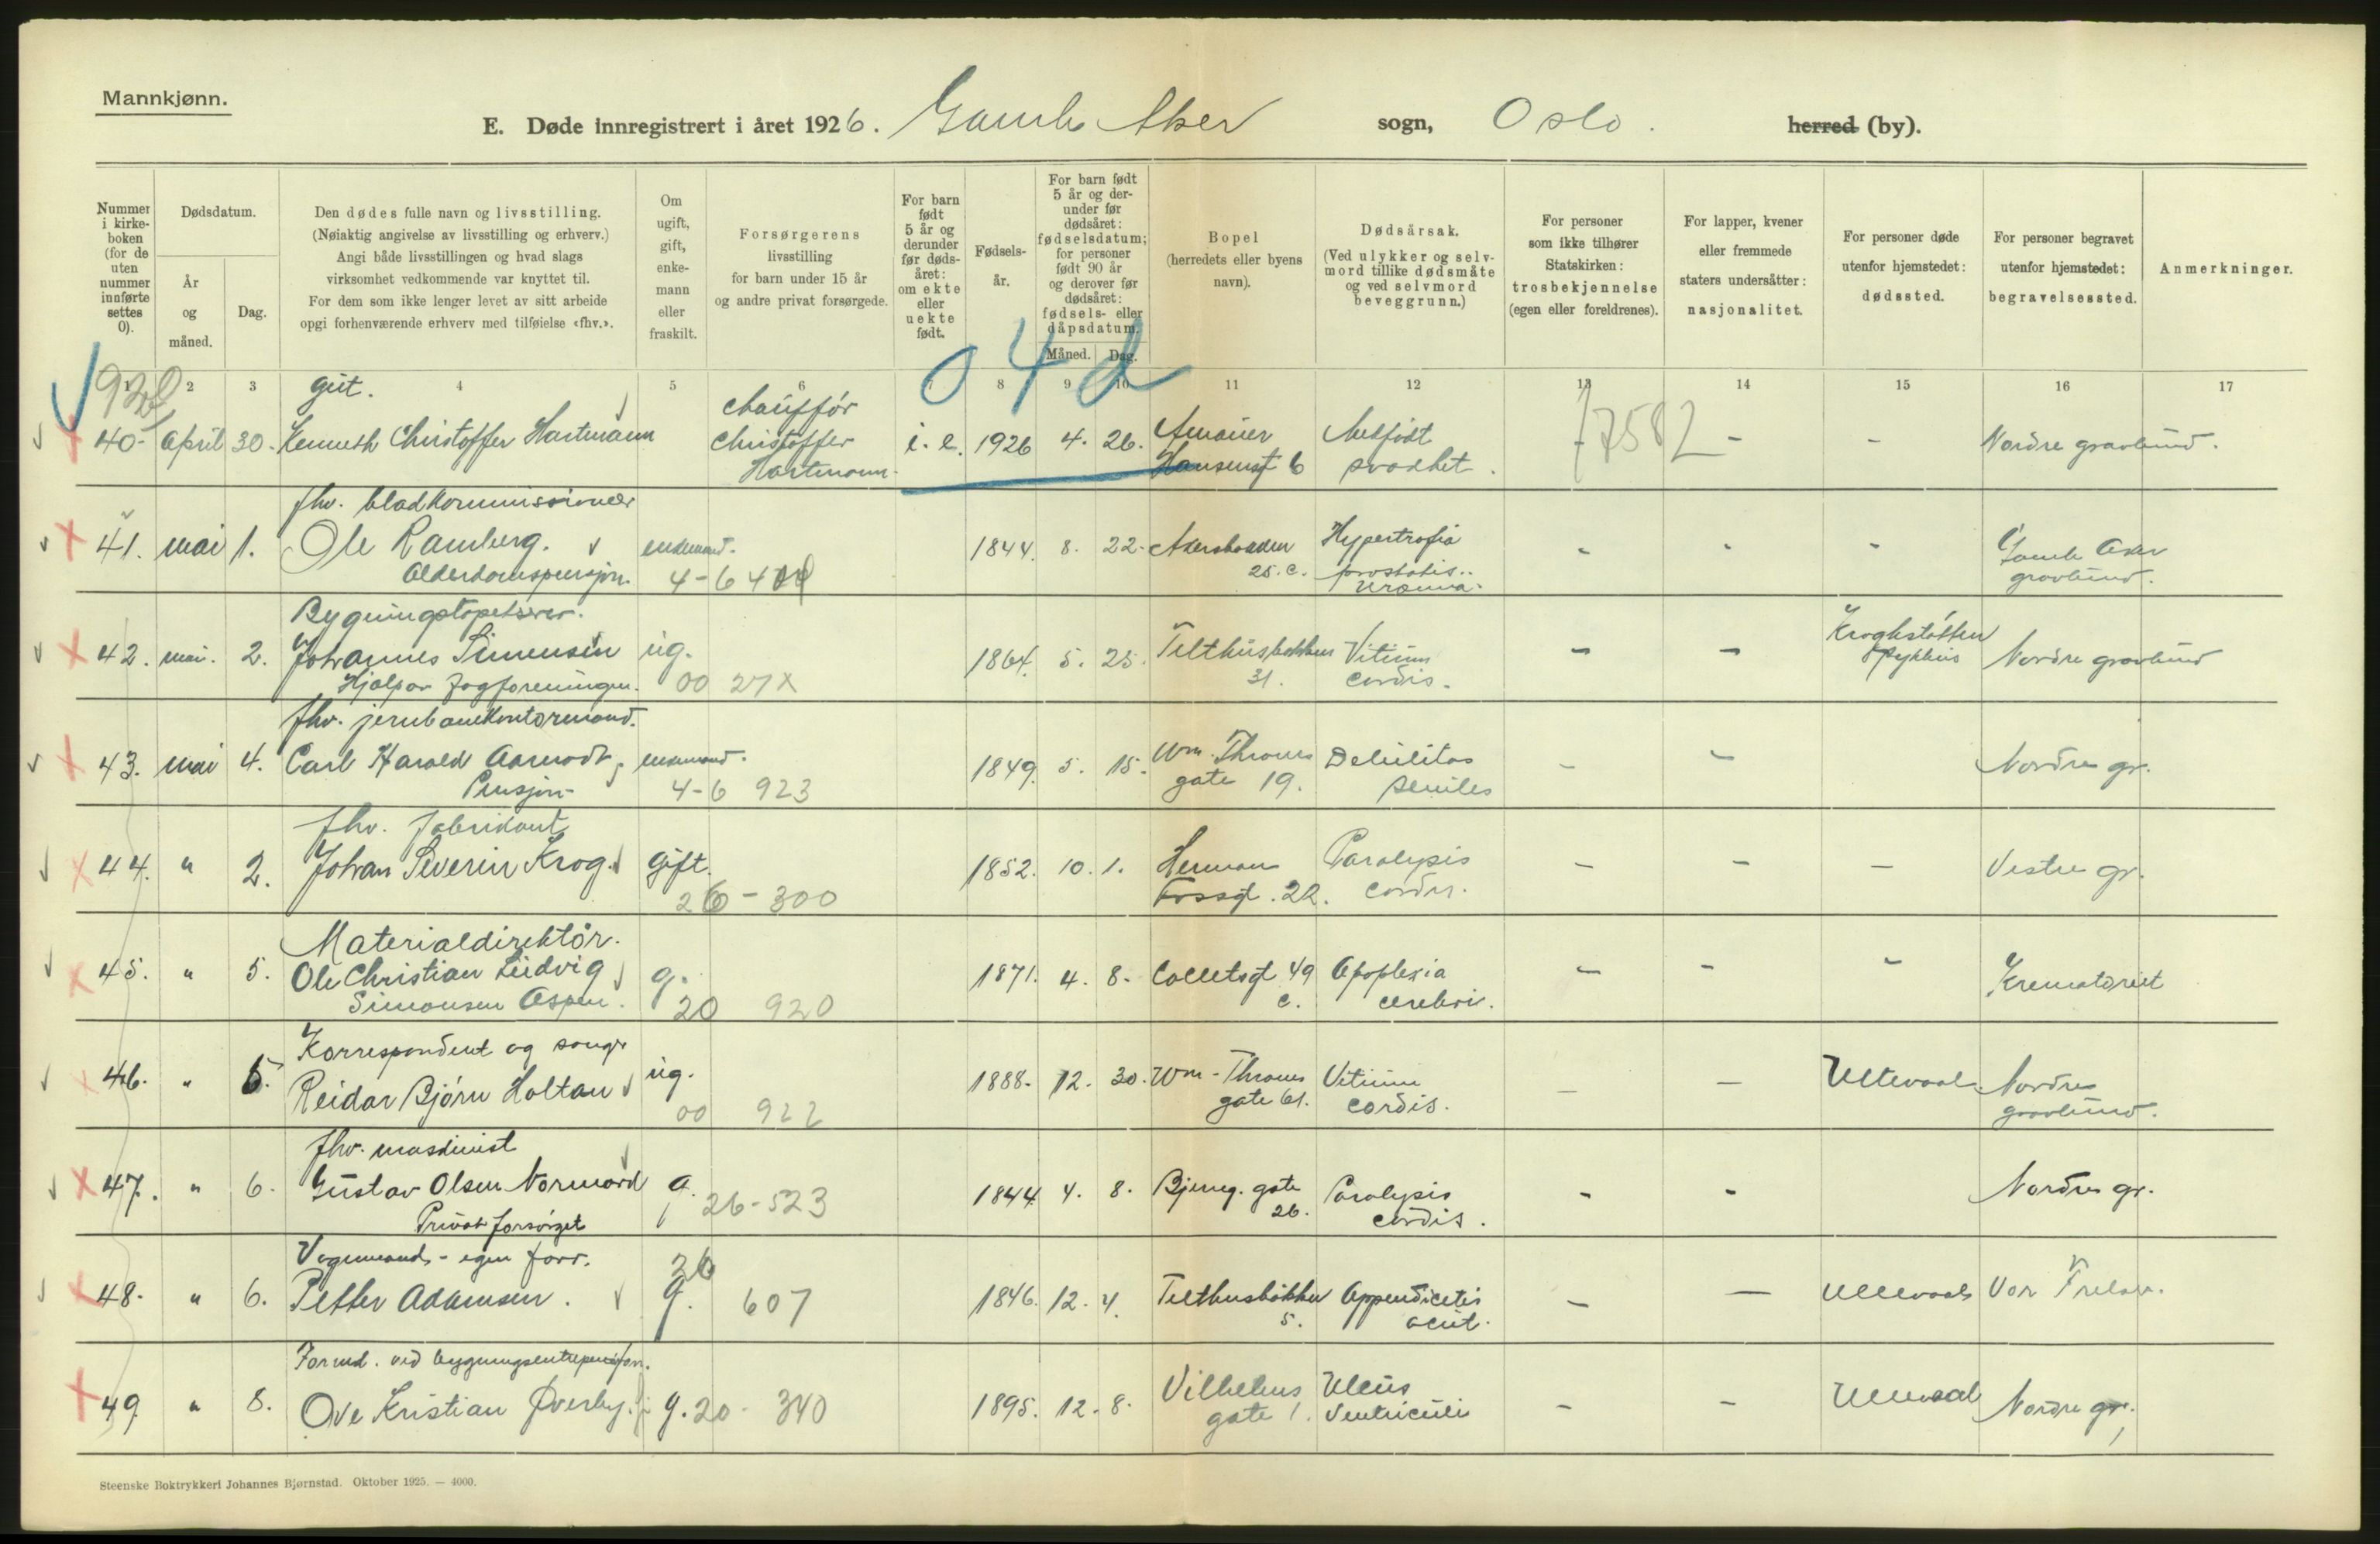 Mannkjønn.
E. Døde innregistrert i året 1926. Gamle Aker sogn, Oslo. herred (by).
Nummer i kirke-boken (for de uten nummer innførte settes 0).
Dødsdatum.
År og måned.
Dag.
Den dødes fulle navn og livsstilling.
(Nøiaktig angivelse av livsstilling og erhverv.)
Angi både livsstillingen og hvad slags
virksomhet vedkommende var knyttet til.
For dem som ikke lenger levet av sitt arbeide
opgi forhenværende erhverv med tilføielse «fhv.».
Om ugift, gift, enke-mann eller fraskilt.
Forsørgerens livsstilling for barn under 15 år og andre privat forsørgede.
For barn født 5 år og derunder før døds-året: om ekte eller uekte født.
Fødsels-år.
For barn født 5 år og der-under før dødsåret: fødselsdatum; for personer født 90 år og derover før dødsåret: fødsels- eller dåpsdatum.
Måned. Dag.
Bopel (herredets eller byens navn).
Dødsårsak.
(Ved ulykker og selv-mord tillike dødsmåte og ved selvmord beveggrunn.)
For personer som ikke tilhører Statskirken: trosbekjennelse (egen eller foreldrenes).
For lapper, kvener eller fremmede staters undersåtter: nasjonalitet.
For personer døde utenfor hjemstedet: dødssted.
For personer begravet utenfor hjemstedet: begravelsessted.
Anmerkninger.
1 2 3 4 5 6 7 8 9 10 11 12 13 14 15 16 17
920 04d
gut. chauffør
40- April 30. Kenneth Christoffer Hartmann Christoffer Hartmann. i. e. 1926 4. 26. Hansensgt 6 Medfødt svakhet. 7582 - - Nordre gravlund.
fhv. bladkommissionær
41. mai 1. Ole Ramberg. enkemand. 1844. 8. 22. Akersbakken 25.c. Hypertrofia prostatis. Uræmia. - - - Gamle Aker gravlund.
Alderdomspensjon. 4-6 4
Bygningstapetserer.
42. mai. 2. Johannes Simensen ug. 1864. 5. 25. Telthusbakken 31. Vitium cordis. - - Krogstøtten sykehus Nordre gravlund
Hjelp av fagforeningen. 00 27x
fhv. jernbanekontormand.
43. mai 4. Carl Harald Aamodt, enkemand. 1849. 5. 15. Wm. Thranes gate 19. Debilitas senilis - - Nordre gr.
Pensjon- 4-6 923
fhv. fabrikant
44. " 2. Johan Severin Krog. gift. 1852. 10. 1. Herman Fossgt. 22. Paralysis cordis. - - - Vestre gr.
26-300
Materialdirektør.
45. " 5. Ole Christian Ludvig g. 1871. 4. 8. Colletsgt 49 c. Apoplexia cerebri. - - - Krematoriet
Simonsen Aspen. 20 920
Korrespondent og sanger
46. " 5. Reidar Bjørn Holtan ug. 1888. 12. 30. Wm. Thranes gate 61. Vitium cordis. - - Ullevaal Nordre gravlund.
00 922
fhv. maskinist
47. " 6. Gustav Olsen Normand g. 1844 4. 8. Bjerreg. gate 26. Paralysis cordis. - - Nordre gr.
Privat forsørget 26-523
Vognmand - egen forr. 26
48. " 6. Petter Adamsen. g. 607 1846. 12. 4. Telthusbakken 5. Appendicitis acut. - - Ullevaal Vor Frelser.
Formd. ved bygningsentreprenørforr.
49 " 8. Ove Kristian Øverby. g. 20- 340 1895. 12. 8. Vilhelms gate 1. Ulcus Ventriculi - - Ullevaal Nordre gr.
Steenske Boktrykkeri Johannes Bjørnstad. Oktober 1925. — 4000.